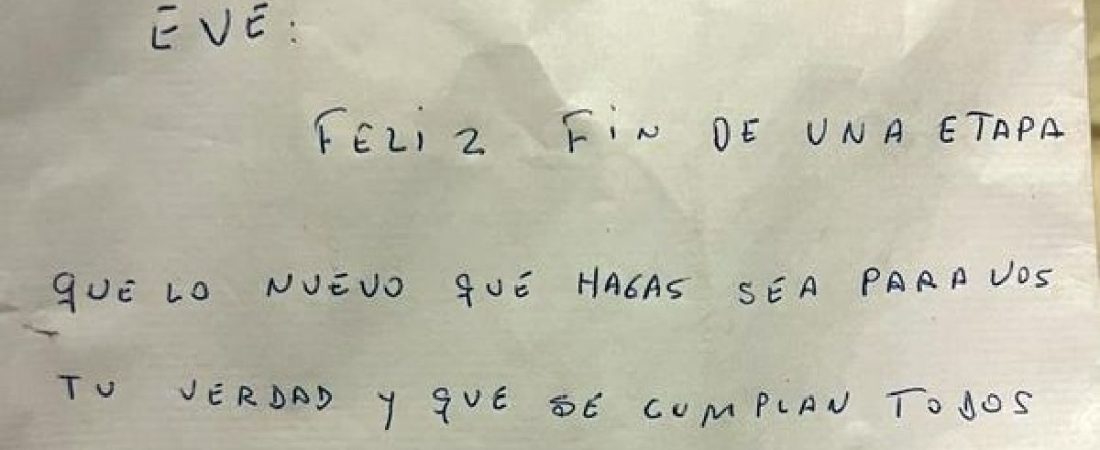 EVE:
FELIZ FIN DE UNA ETAPA
QUE LO NUEVO QUE HAGAS SEA PARA VOS
TU VERDAD Y QUE SE CUMPLAN TODOS